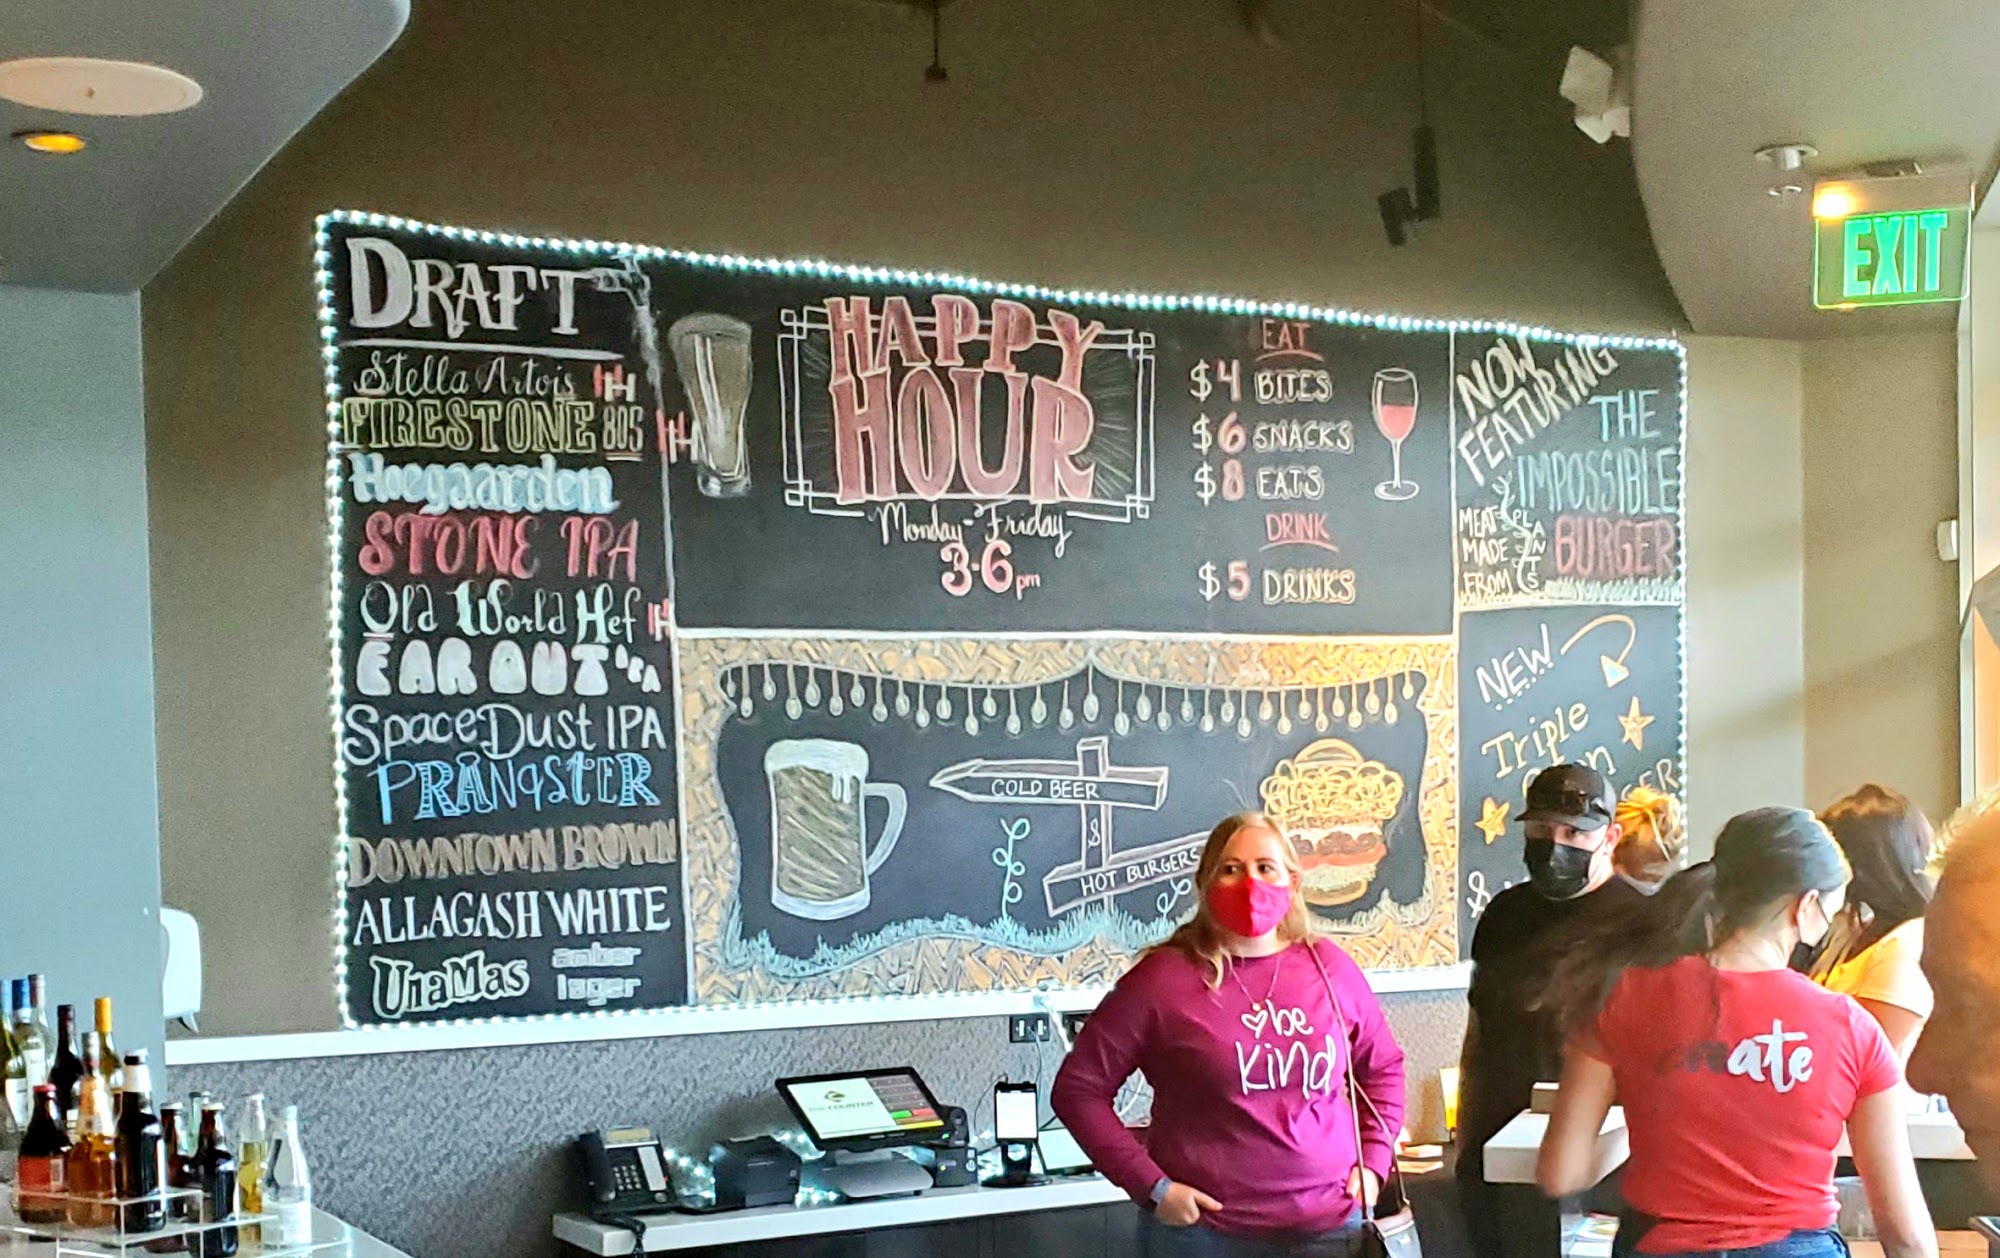 DRAFT
Stella Artois
FIRESTONE 805
Hoegaarden
STONE IPA
Old World Hef
Space Dust IPA
PRANQSTER
DOWNTOWN BROWN
ALLAGASH WHITE
UnaMas amber lager
HAPPY
HOUR
Monday-Friday
3-6pm
EAT
$4 BITES
$6 SNACKS
$8 EATS
DRINK
$5 DRINKS
COLD BEER
$
HOT BURGERS
NOW
FEATURING
THE
IMPOSSIBLE
BURGER
MEAT
MADE
FROM
PLANTS
NEW
Triple
$
EXIT
be
kind
THE COUNTER